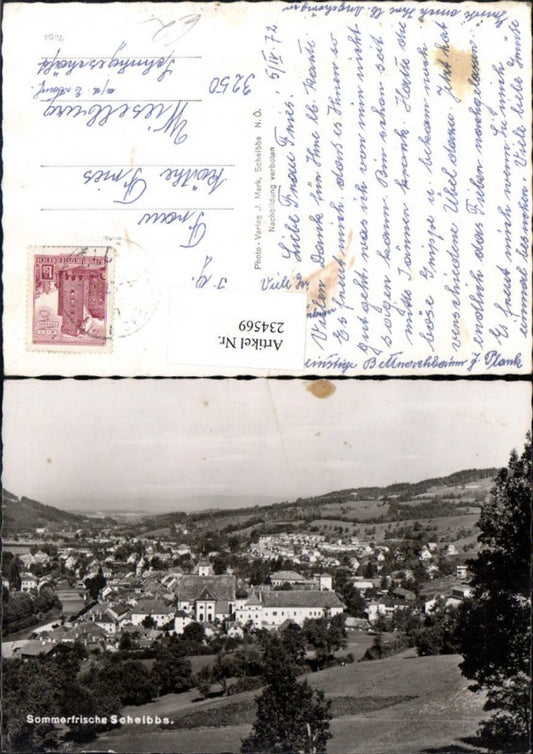 Grüße auch Ihre lb. Angehörigen
5/IV. 72
Liebe Frau Fries!
Vielen Dank für Ihre lb. Karte
Es freut mich, dass es Ihnen so
gut geht, was ich von mir nicht
sagen kann. Bin schon seit
mitte Jänner krank. Hatte die
böse Grippe u. bekam noch
verschiedene Übel dazu. Jetzt hat
endlich das Fieber nachgelassen.
Es freut mich, wenn S. mich
einmal besuchen. Viele liebe Grüße
einstige Bettnachbarin J. Plank
Photo-Verlag J. Mark, Scheibbs N. Ö.
Nachbildung verboten
Frau
Käthe Fries
Wieselburg
a/d Erlauf
3250
7/54
Artikel Nr.
234569
Sommerfrische Scheibbs.